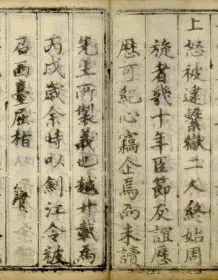 上怒被逮繫獄二人終始周
旋者幾十年臣節友誼歷
歷可紀心竊企焉而未讀
先生所製義也越廿載為
丙戌歲余時以劍江令被
召西臺屈